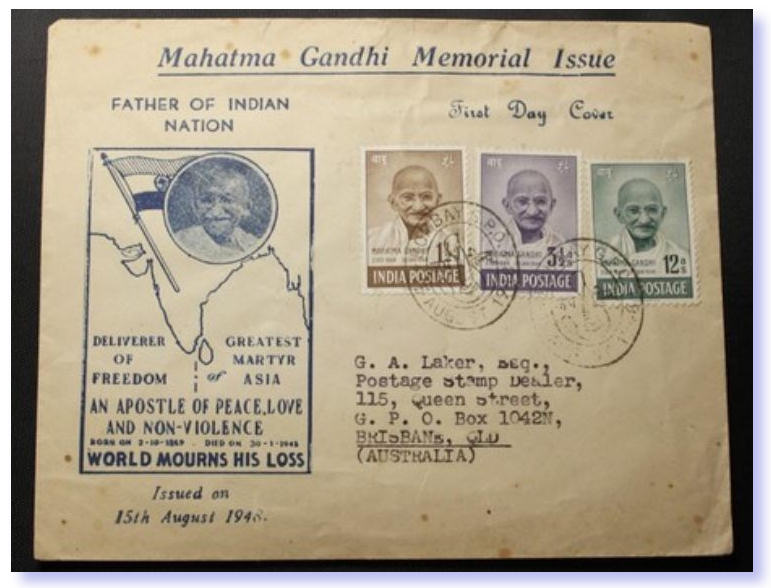 Mahatma Gandhi Memorial Issue
FATHER OF INDIAN
NATION
First Day Cover
DELIVERER
OF
FREEDOM
GREATEST
MARTYR
of ASIA
AN APOSTLE OF PEACE, LOVE
AND NON-VIOLENCE
BORN ON 2-10-1869 . DIED ON 30-1-1948
WORLD MOURNS HIS LOSS
Issued on
15th August 1948.
बापू
MAHATMA GANDHI
INDIA POSTAGE
बापू
MAHATMA GANDHI
3½ as
INDIA POSTAGE
बापू
MAHATMA GANDHI
12 as
INDIA POSTAGE
BOMBAY G.P.O.
G. A. Laker, Esq.,
Postage Stamp Dealer,
115, Queen Street,
G. P. O. Box 1042N,
BRISBANE, QLD
(AUSTRALIA)